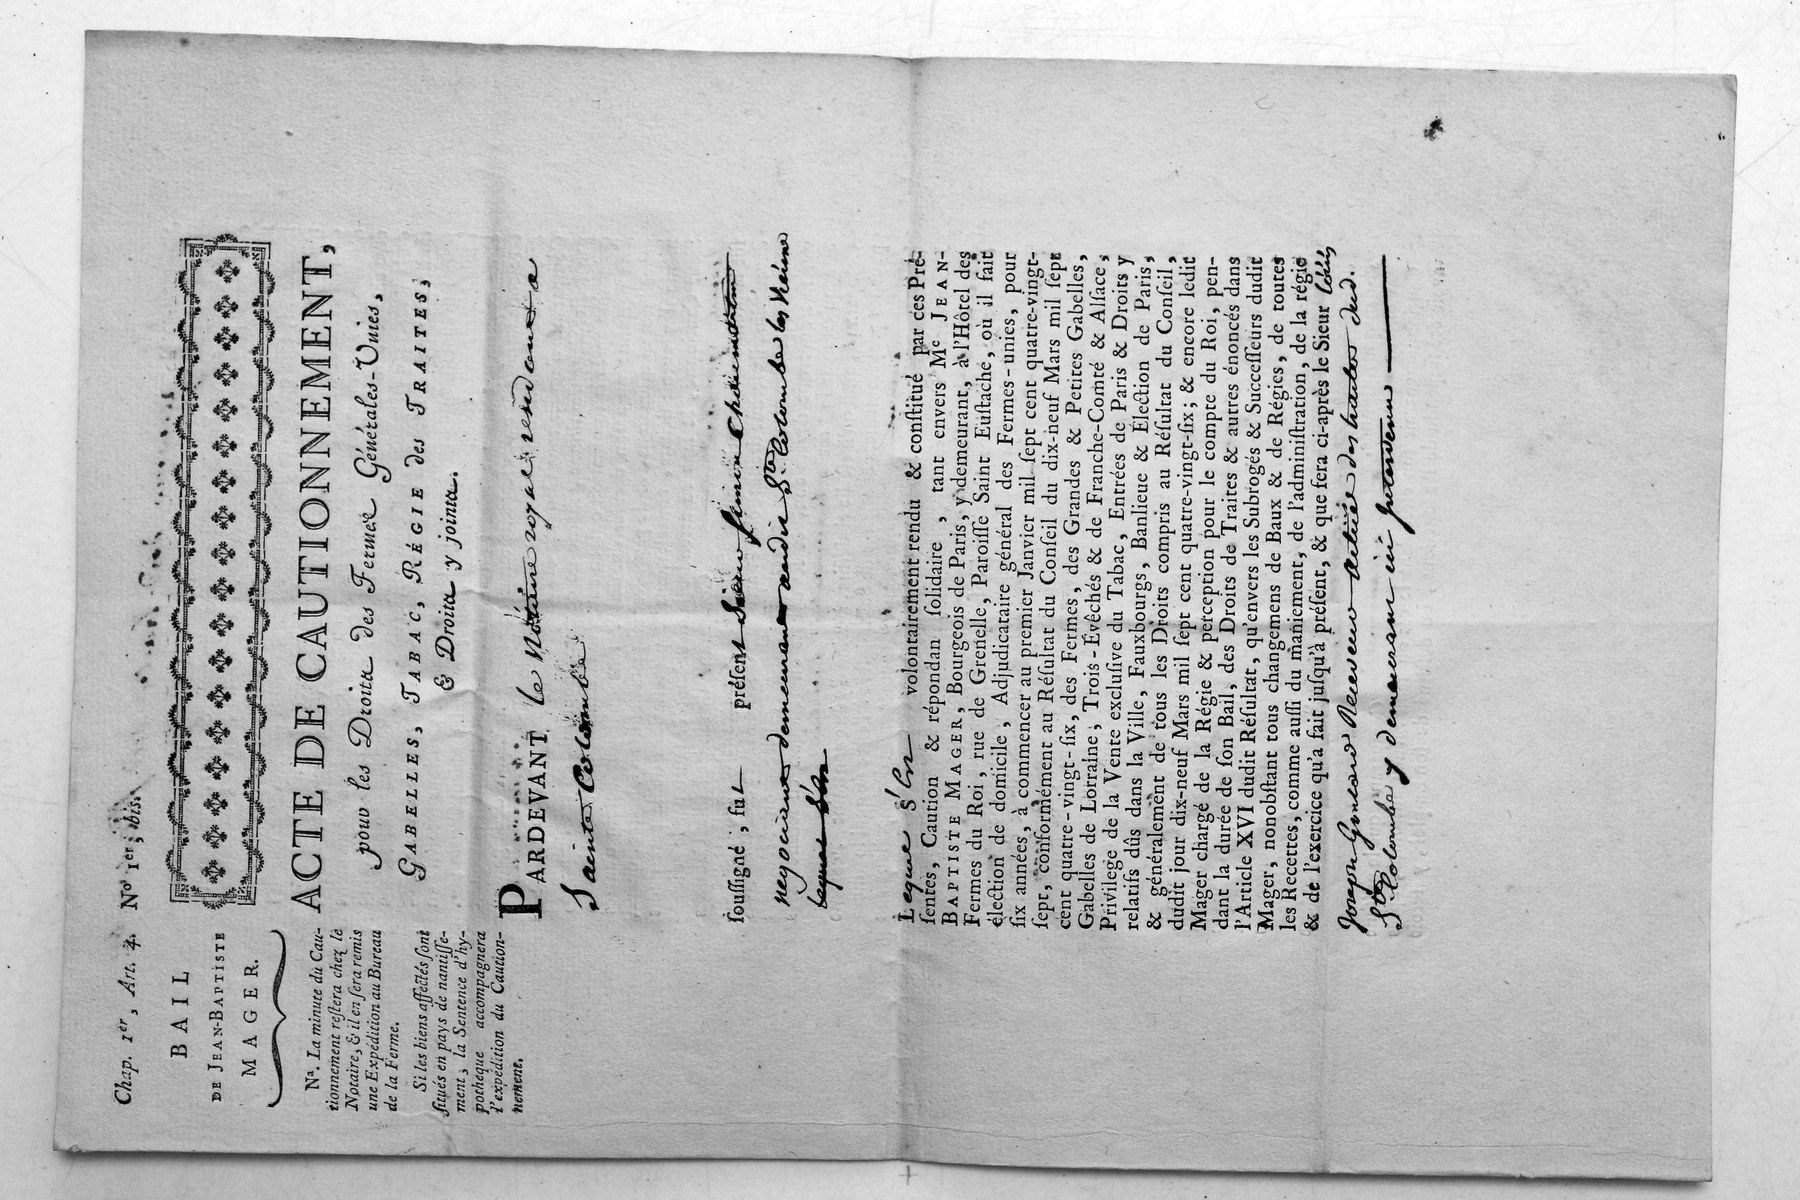 Chap. 1er, Art. 4. No 1er, bis.
BAIL
DE JEAN-BAPTISTE
MAGER.
Na. La minute du Cau-
tionnement reſtera chez le
Notaire, & il en ſera remis
une Expédition au Bureau
de la Ferme.
Si les biens affectés ſont
ſitués en pays de nantiſſe-
ment, la Sentence d'hy-
potheque accompagnera
l'expédition du Caution-
nement.
ACTE DE CAUTIONNEMENT,
pour les Droits des Fermes Générales-Unies,
GABELLES, TABAC, RÉGIE des TRAITES,
& Droits y joints.
PARDEVANT le Notaire royal résidant a
Sainte Colombe
ſouſſigné, fut préſent Sieur Simon
negociant demeurant audit Ste Colombe les Vienne
Lequel s'est
Lequel s'est volontairement rendu & conſtitué par ces Pré-
ſentes, Caution & répondan ſolidaire, tant envers Me JEAN-
BAPTISTE MAGER, Bourgeois de Paris, y demeurant, à l'Hôtel des
Fermes du Roi, rue de Grenelle, Paroiſſe Saint Euſtache, où il fait
élection de domicile, Adjudicataire général des Fermes-unies, pour
ſix années, à commencer au premier Janvier mil ſept cent quatre-vingt-
ſept, conformément au Réſultat du Conſeil du dix-neuf Mars mil ſept
cent quatre-vingt-ſix, des Fermes, des Grandes & Petites Gabelles,
Gabelles de Lorraine, Trois-Évêchés & de Franche-Comté & Alſace,
Privilege de la Vente excluſive du Tabac, Entrées de Paris & Droits y
relatifs dûs dans la Ville, Fauxbourgs, Banlieue & Élection de Paris,
& généralement de tous les Droits compris au Réſultat du Conſeil,
dudit jour dix-neuf Mars mil ſept cent quatre-vingt-ſix; & encore ledit
Mager chargé de la Régie & perception pour le compte du Roi, pen-
dant la durée de ſon Bail, des Droits de Traites & autres énoncés dans
l'Article XVI dudit Réſultat, qu'envers les Subrogés & Succeſſeurs dudit
Mager, nonobſtant tous changemens de Baux & de Régies, de toutes
les Recettes, comme auſſi du maniement, de l'adminiſtration, de la régie
& de l'exercice qu'a fait juſqu'à préſent, & que fera ci-après le Sieur Louis
Joseph Receveur des traites aud.
Ste Colombe y demeurant ici